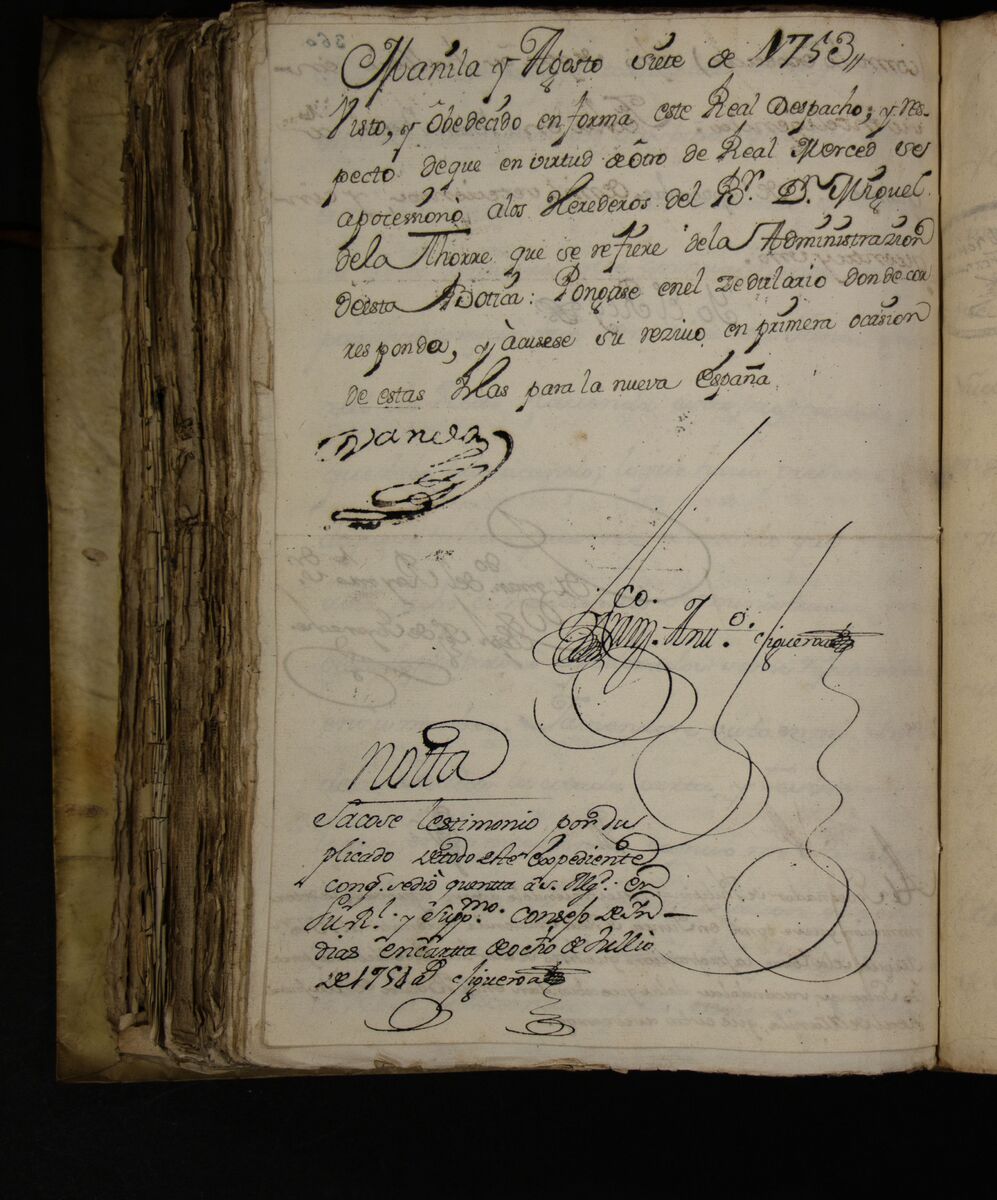 Manila y Agosto siete de 1753,,
Visto, y Obedecido en forma este Real Despacho; y res-
pecto de que en virtud de otro de Real Merced se
aposesionò a los Herederos del Br. Dn. Miguel
de la Thorre que se refiere de la Administrazion
de esta Botica: Pongase en el Zedulario donde cor
responda, y àcusese su rezivo en primera ocasion
de estas Yslas para la nueva España.
co.
Fran. Anto. Figueroa
notta
Sacose testimonio por du
plicado de todo este Expediente
con q. se diò quentta à S. Mg. en
su Rl. y Suppmo. Consejo de Yn-
dias en cartta de ocho de Jullio
de 1754 as Figueroa